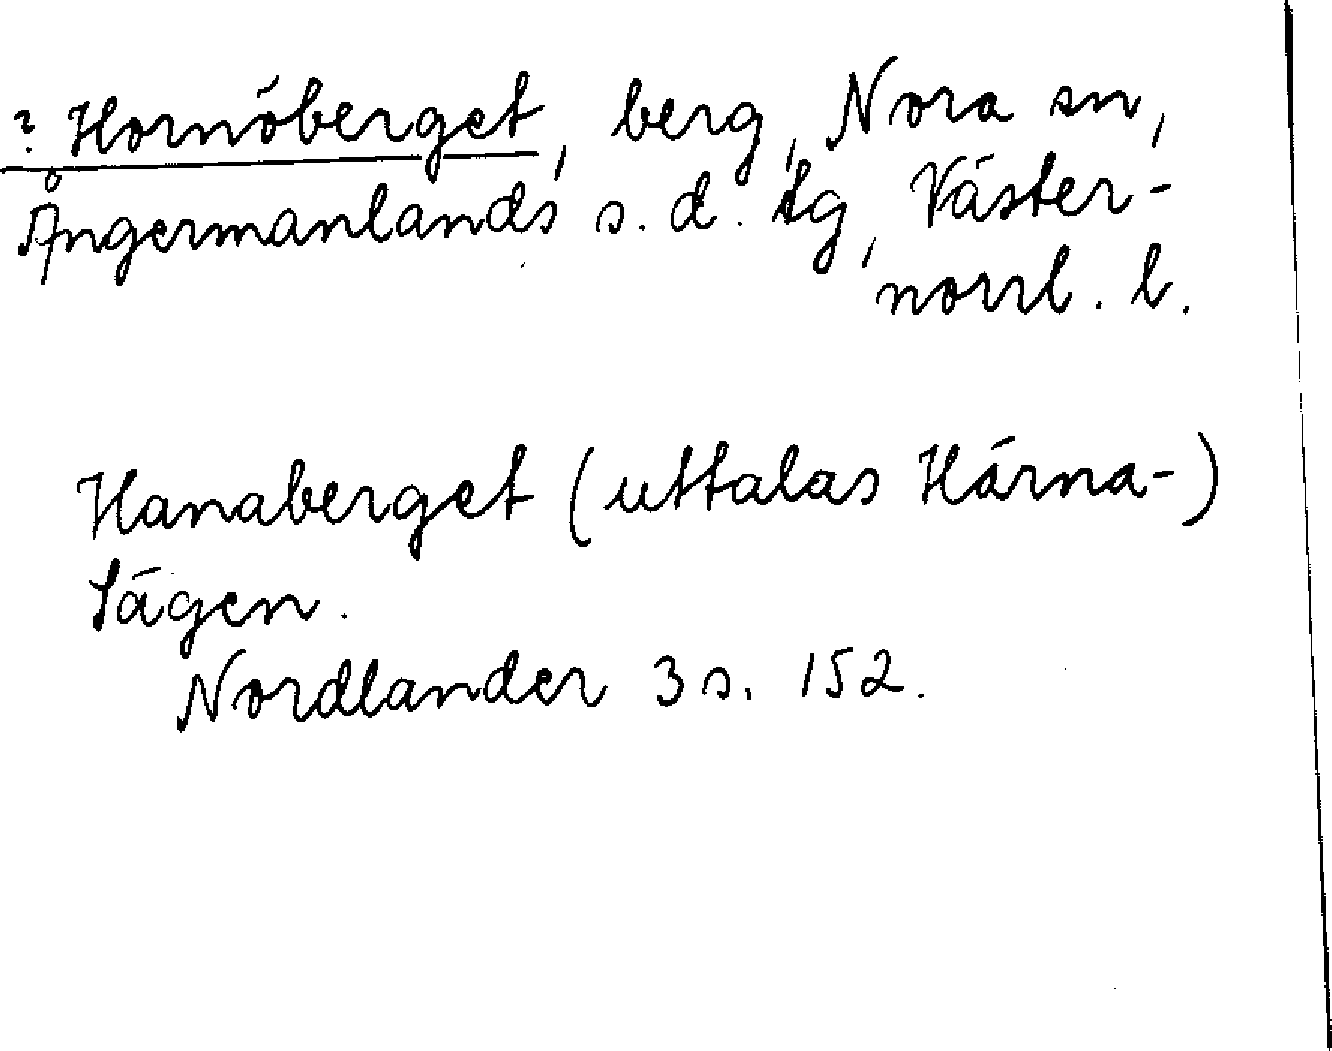 ? Hornöberget, berg, Nora sn,
Ångermanlands s. d. tg, Väster-
norrl. l.
Hanaberget (uttalas Härna-)
Sägen.
Nordlander 3 s. 152.